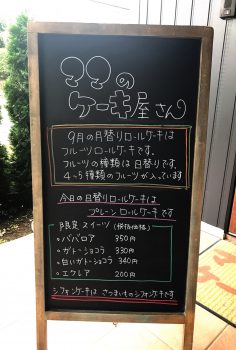 ママの
ケーキ屋さん
9月の月替りロールケーキは
フルーツロールケーキです。
フルーツの種類は日替りです。
4~5種類のフルーツが入っています
今日の日替りロールケーキは
プレーンロールケーキです
限定スイーツ(税抜価格)
・ババロア 350円
・ガトーショコラ 330円
・白いガトーショコラ 340円
・エクレア 200円
シフォンケーキは、さつまいものシフォンケーキです